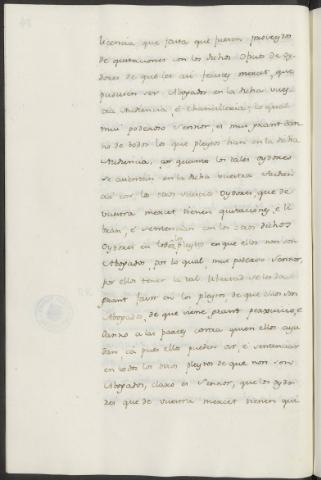 licencia que fasta que fueron proveydos
de quitaciones con los dichos de Oy-
dores de que les ais fecho mercet, que
pudiesen ser Abogados en la dicha vues-
tra Audiencia, é Chancilleria, lo qual
mui poderoso Sennor, es mui grant dan-
no de todos los que pleytos han en la dicha
Audiencia, por quanto los tales oydores
se asientan en la dicha vuestra Audien-
cia con los otros vuestros Oydores, que de
vuestra mercet tienen quitaciones, é li-
bran, é sentencian con los otros dichos
Oydores en todos los pleytos en que ellos non son
Abogados, por lo qual, mui poderoso Sennor,
por ellos tener la tal libertad se les da
grant favor en los pleytos de que ellos son
Abogados, de que viene grant perjuicio, é
danno a las partes contra quien ellos ayu-
dan, ca pues ellos pueden oir, é sentenciar
en todos los otros pleytos de que non son
Abogados, claro es Sennor, que los oydo-
res que de vuestra mercet tienen qui